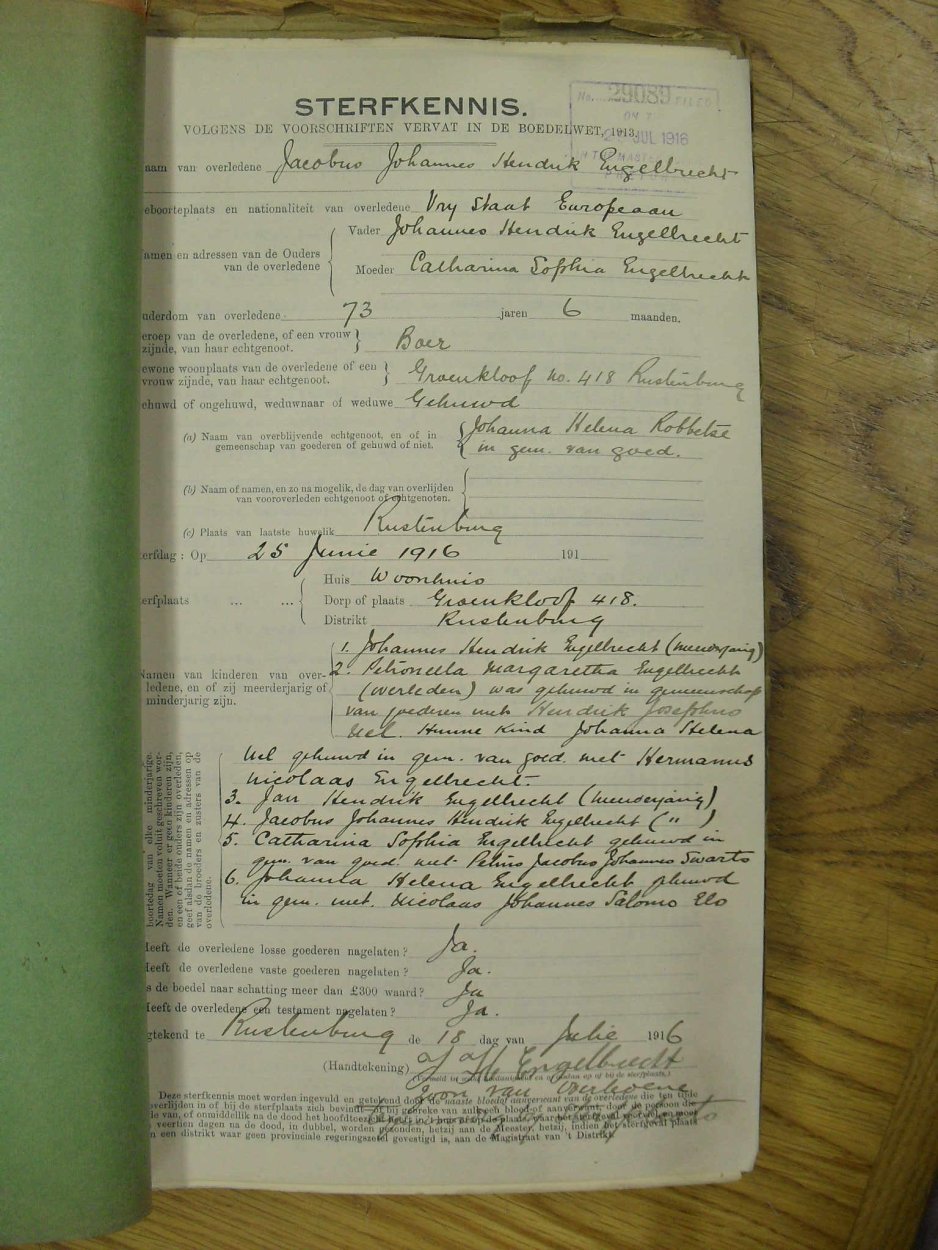 STERFKENNIS.
VOLGENS DE VOORSCHRIFTEN VERVAT IN DE BOEDELWET, 1913.
No. 29089 FILED
JUL 1916
aam van overledene Jacobus Johannes Hendrik Engelbrecht
eboorteplaats en nationaliteit van overledene Vry Staat Europeaan
amen en adressen van de Ouders van de overledene
Vader Johannes Hendrik Engelbrecht
Moeder Catharina Sophia Engelbrecht
uderdom van overledene 73 jaren 6 maanden.
eroep van de overledene, of een vrouw zijnde, van haar echtgenoot. Boer
ewone woonplaats van de overledene of een vrouw zijnde, van haar echtgenoot. Groenkloof No. 418 Rustenburg
ehuwd of ongehuwd, weduwnaar of weduwe Gehuwd
(a) Naam van overblijvende echtgenoot, en of in gemeenschap van goederen of gehuwd of niet.
Johanna Helena Robbetse
in gem. van goed.
(b) Naam of namen, en zo na mogelik, de dag van overlijden van vooroverleden echtgenoot of echtgenoten.
(c) Plaats van laatste huwelik Rustenburg
erfdag : Op 25 Junie 1916 191
erfplaats ... ...
Huis Woonhuis
Dorp of plaats Groenkloof 418.
Distrikt Rustenburg
Namen van kinderen van overledene, en of zij meerderjarig of minderjarig zijn.
1. Johannes Hendrik Engelbrecht (meerderjarig)
2. Petronella Margaretha Engelbrecht
(overleden) was gehuwd in gemeenschap
van goederen met Hendrik Josephus
Nel. Hunne Kind Johanna Helena
Nel gehuwd in gem. van goed. met Hermanus
Nicolaas Engelbrecht.
3. Jan Hendrik Engelbrecht (meerderjarig)
4. Jacobus Johannes Hendrik Engelbrecht ( " )
5. Catharina Sophia Engelbrecht gehuwd in
gem. van goed. met Petrus Jacobus Johannes Swarts
6. Johanna Helena Engelbrecht gehuwd
in gem. met. Nicolaas Johannes Salomo Elo
boortedag van elke minderjarige.
Namen moeten voluit geschreven worden. Wanneer er geen kinderen zijn,
en een of beide ouders zijn overleden,
geef alsdan de namen en adressen op
van de broeders en zusters van de
overledene.
Heeft de overledene losse goederen nagelaten? Ja.
Heeft de overledene vaste goederen nagelaten? Ja.
s de boedel naar schatting meer dan £300 waard? Ja
Heeft de overledene een testament nagelaten? Ja.
gtekend te Rustenburg de 18 dag van Julie 1916
(Handtekening) J J H Engelbrecht
Zoon van Overledene
Deze sterfkennis moet worden ingevuld en getekend door de naaste bloedof aanverwant van de overledene die ten tijde